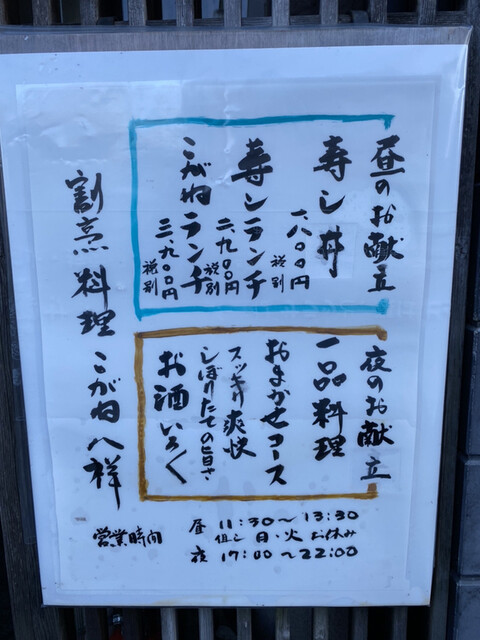 昼のお献立
寿し丼
一、八〇〇円
税別
寿しランチ
二、九〇〇円
税別
こがねランチ
三、九〇〇円
税別
夜のお献立
一品料理
おまかせコース
スッキリ爽快
しぼりたての旨さ
お酒いろ〱
割烹料理 こがね八祥
営業時間
昼 11:30〜13:30
但し 日・火 お休み
夜 17:00〜22:00